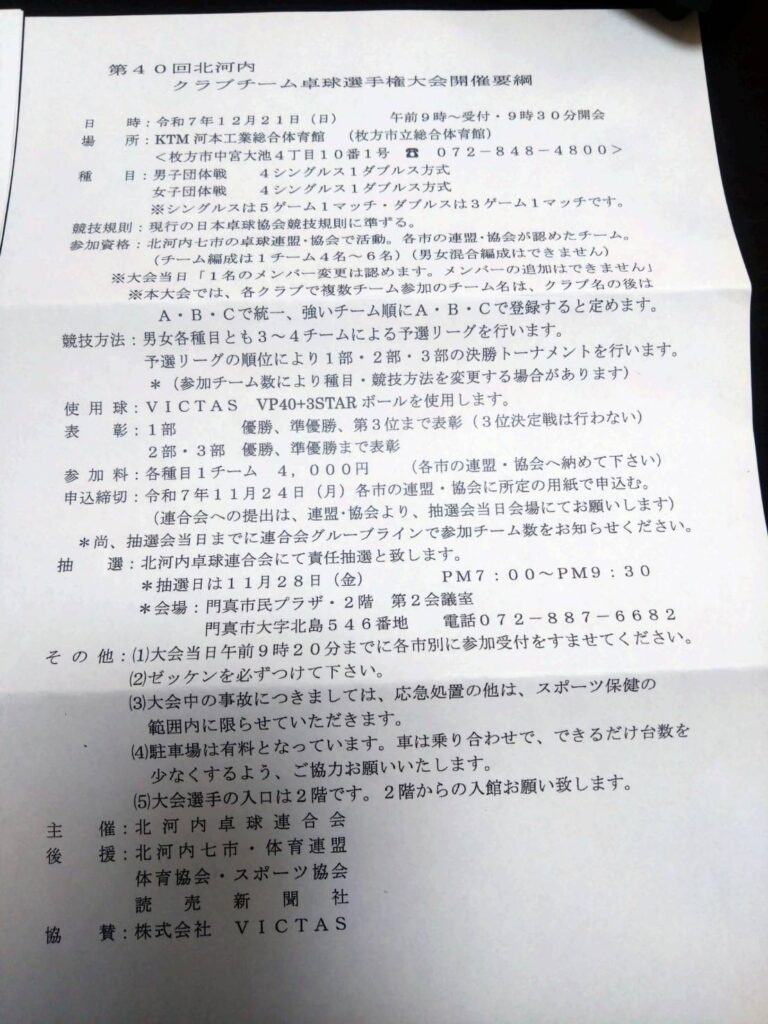 第４０回北河内
クラブチーム卓球選手権大会開催要綱
日　時：令和７年１２月２１日（日）　午前９時～受付・９時３０分開会
場　所：KTM 河本工業総合体育館　（枚方市立総合体育館）
＜枚方市中宮大池４丁目１０番１号　☎　０７２－８４８－４８００＞
種　目：男子団体戦　４シングルス１ダブルス方式
女子団体戦　４シングルス１ダブルス方式
※シングルスは５ゲーム１マッチ・ダブルスは３ゲーム１マッチです。
競技規則：現行の日本卓球協会競技規則に準ずる。
参加資格：北河内七市の卓球連盟・協会で活動。各市の連盟・協会が認めたチーム。
（チーム編成は１チーム４名～６名）（男女混合編成はできません）
※大会当日「１名のメンバー変更は認めます。メンバーの追加はできません」
※本大会では、各クラブで複数チーム参加のチーム名は、クラブ名の後は
Ａ・Ｂ・Ｃで統一、強いチーム順にＡ・Ｂ・Ｃで登録すると定めます。
競技方法：男女各種目とも３～４チームによる予選リーグを行います。
予選リーグの順位により１部・２部・３部の決勝トーナメントを行います。
＊（参加チーム数により種目・競技方法を変更する場合があります）
使用球：ＶＩＣＴＡＳ　VP40+3STAR ボールを使用します。
表　彰：１部　優勝、準優勝、第３位まで表彰（３位決定戦は行わない）
２部・３部　優勝、準優勝まで表彰
参加料：各種目１チーム　４，０００円　（各市の連盟・協会へ納めて下さい）
申込締切：令和７年１１月２４日（月）各市の連盟・協会に所定の用紙で申込む。
（連合会への提出は、連盟・協会より、抽選会当日会場にてお願いします）
＊尚、抽選会当日までに連合会グループラインで参加チーム数をお知らせください。
抽　選：北河内卓球連合会にて責任抽選と致します。
＊抽選日は１１月２８日（金）　ＰＭ７：００～ＰＭ９：３０
＊会場：門真市民プラザ・２階　第２会議室
門真市大字北島５４６番地　電話０７２－８８７－６６８２
その他：⑴大会当日午前９時２０分までに各市別に参加受付をすませてください。
⑵ゼッケンを必ずつけて下さい。
⑶大会中の事故につきましては、応急処置の他は、スポーツ保健の
範囲内に限らせていただきます。
⑷駐車場は有料となっています。車は乗り合わせで、できるだけ台数を
少なくするよう、ご協力お願いいたします。
⑸大会選手の入口は２階です。２階からの入館お願い致します。
主　催：北河内卓球連合会
後　援：北河内七市・体育連盟
体育協会・スポーツ協会
読売新聞社
協　賛：株式会社　ＶＩＣＴＡＳ